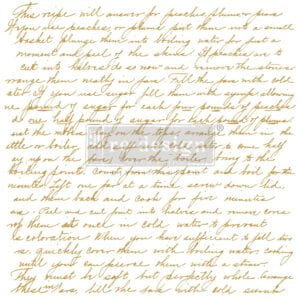 This recipe will answer for peaches, plums or pears
If you use peaches or plums, put them into a small
basket plunge them into boiling water for just a
moment and peel of the skins. If peaches are to
cut into halves do so now and remove the stones
range them neatly in jars. Fill the jars with cold
If you use sugar fill them with syrup allowing
pound of sugar for each four pounds of peaches
half pound of sugar for each pound of plums
Put on the tops, arrange them in the
boiler
up on the jars. Cover the boiler bring to the
boiling point. Count from this point and boil for
minutes. Lift one jar at a time screw down lid,
and them back and cook for five minutes
Peel and cut fruit into halves and remove cores
them at once in cold water to prevent
discoloration. When you have sufficient to fill
quickly cover them with boiling water
until you can pierce them with a straw.
They must be soft, but perfectly whole. Arrange
these in jars, fill the jars with cold
re·design